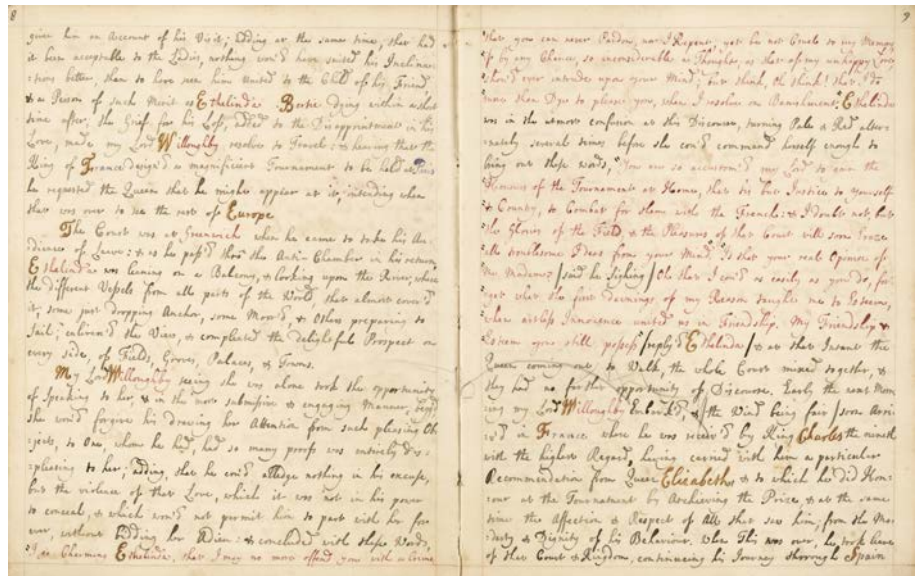 8
give him an Account of his Visit; adding at the same time, that had
it been acceptable to the Ladies, nothing wou'd have suited his Inclina=
=tions better, than to have seen him United to the Child of his Friend,
& a Person of such Merit as Ethelinda. Bertie dying within a short
time after, the Grief for his Loss, added to the Disappointment in his
Love, made my Lord Willoughby resolve to Travel: & hearing that the
King of France design'd a magnificent Tournament to be held at Paris
he requested the Queen that he might appear at it; intending when
that was over to see the rest of Europe
The Court was at Greenwich when he came to take his Au=
dience of Leave: & as he pass'd thro' the Anti-Chamber in his return,
Ethelinda was leaning on a Balcony, & looking upon the River, where
the different Vessels from all parts of the World, that almost cover'd
it, some just dropping Anchor, some Moor'd, & Others preparing to
Sail; enliven'd the View, & compleated the delightful Prospect on
every side, of Fields, Groves, Palaces, & Towns.
My Lord Willoughby seeing she was alone took the opportunity
of Speaking to her, & in the most submissive & engaging Manner, begg'd
she wou'd forgive his drawing her Attention from such pleasing Ob
jects, to One whom he had, had so many proofs was entirely dis=
=pleasing to her; adding, that he cou'd alledge nothing in his excuse,
but the violence of that Love, which it was not in his power
to conceal, & which wou'd not permit him to part with her for
ever, without bidding her Adieu: & concluded with these Words,
Charming Ethelinda, that I may no more offend you with a Crime
9
that you can never Pardon, nor I Repent, yet be not Cruel to my Memory
if by any Chance, so inconsiderable a Thought, as that of my unhappy Love,
shou'd ever intrude upon your Mind; but think, Oh think! that I do
more than Dye to please you, when I resolve on Banishment. Ethelinda
was in the utmost confusion at this Discourse, turning Pale & Red alter=
nately several times before she cou'd command herself enough to
bring out these words, You are so accustom'd my Lord to gain the
Honours of the Tournaments at Home, that tis but Justice to yourself
& Country, to Combat for them with the French: & I doubt not, but
the Glories of the Field, & the Pleasures of that Court will soon Eraze
all troublesome Ideas from your Mind. Is that your real Opinion of
Me Madame? /said he Sighing/ Oh that I cou'd as easily as you do, for=
get what the first dawnings of my Reason taught me to Esteem,
when artless Innocence united us in Friendship. My Friendship &
Esteem you still possess /reply'd Ethelinda/ & at that Instant the
Queen coming out to Walk, the whole Court mixed together, &
they had no farther opportunity of Discourse. Early the next Morn
ing my Lord Willoughby Embark'd, & /the Wind being fair/ soon Arri
v'd in France where he was receiv'd by King Charles the ninth
with the highest Regard, having carried with him a particular
Recommendation from Queen Elizabeth, & to which he did Hon=
our at the Tournament by Atchieving the Prize, & at the same
time the Affection & Respect of All that saw him, from the Mo=
desty & Dignity of his Behaviour. When This was over, he took leave
of that Court & Kingdom, continueing his Journey thorough Spain